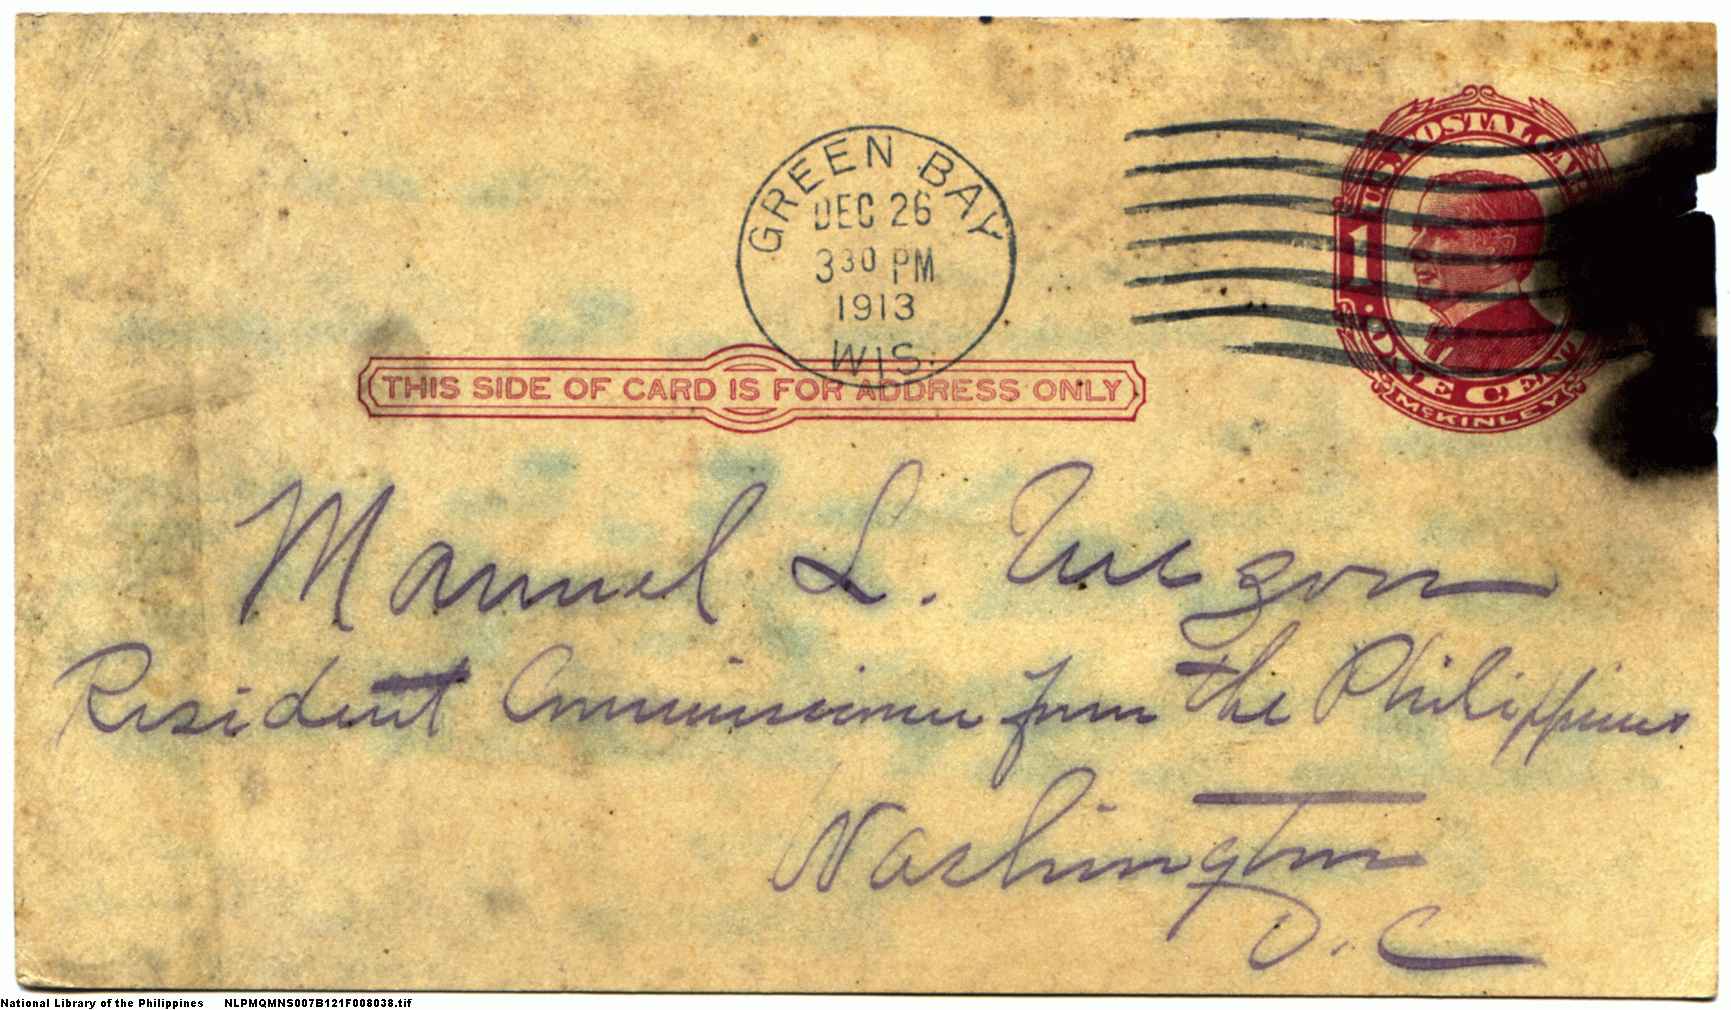 GREEN BAY
DEC 26
3 30 PM
1913
WIS.
U.S. POSTAL CARD
1
ONE CENT
McKINLEY
THIS SIDE OF CARD IS FOR ADDRESS ONLY
Manuel L. Quezon
Resident Commissioner from the Philippines
Washington
D.C
National Library of the Philippines NLPMQMNS007B121F008038.tif